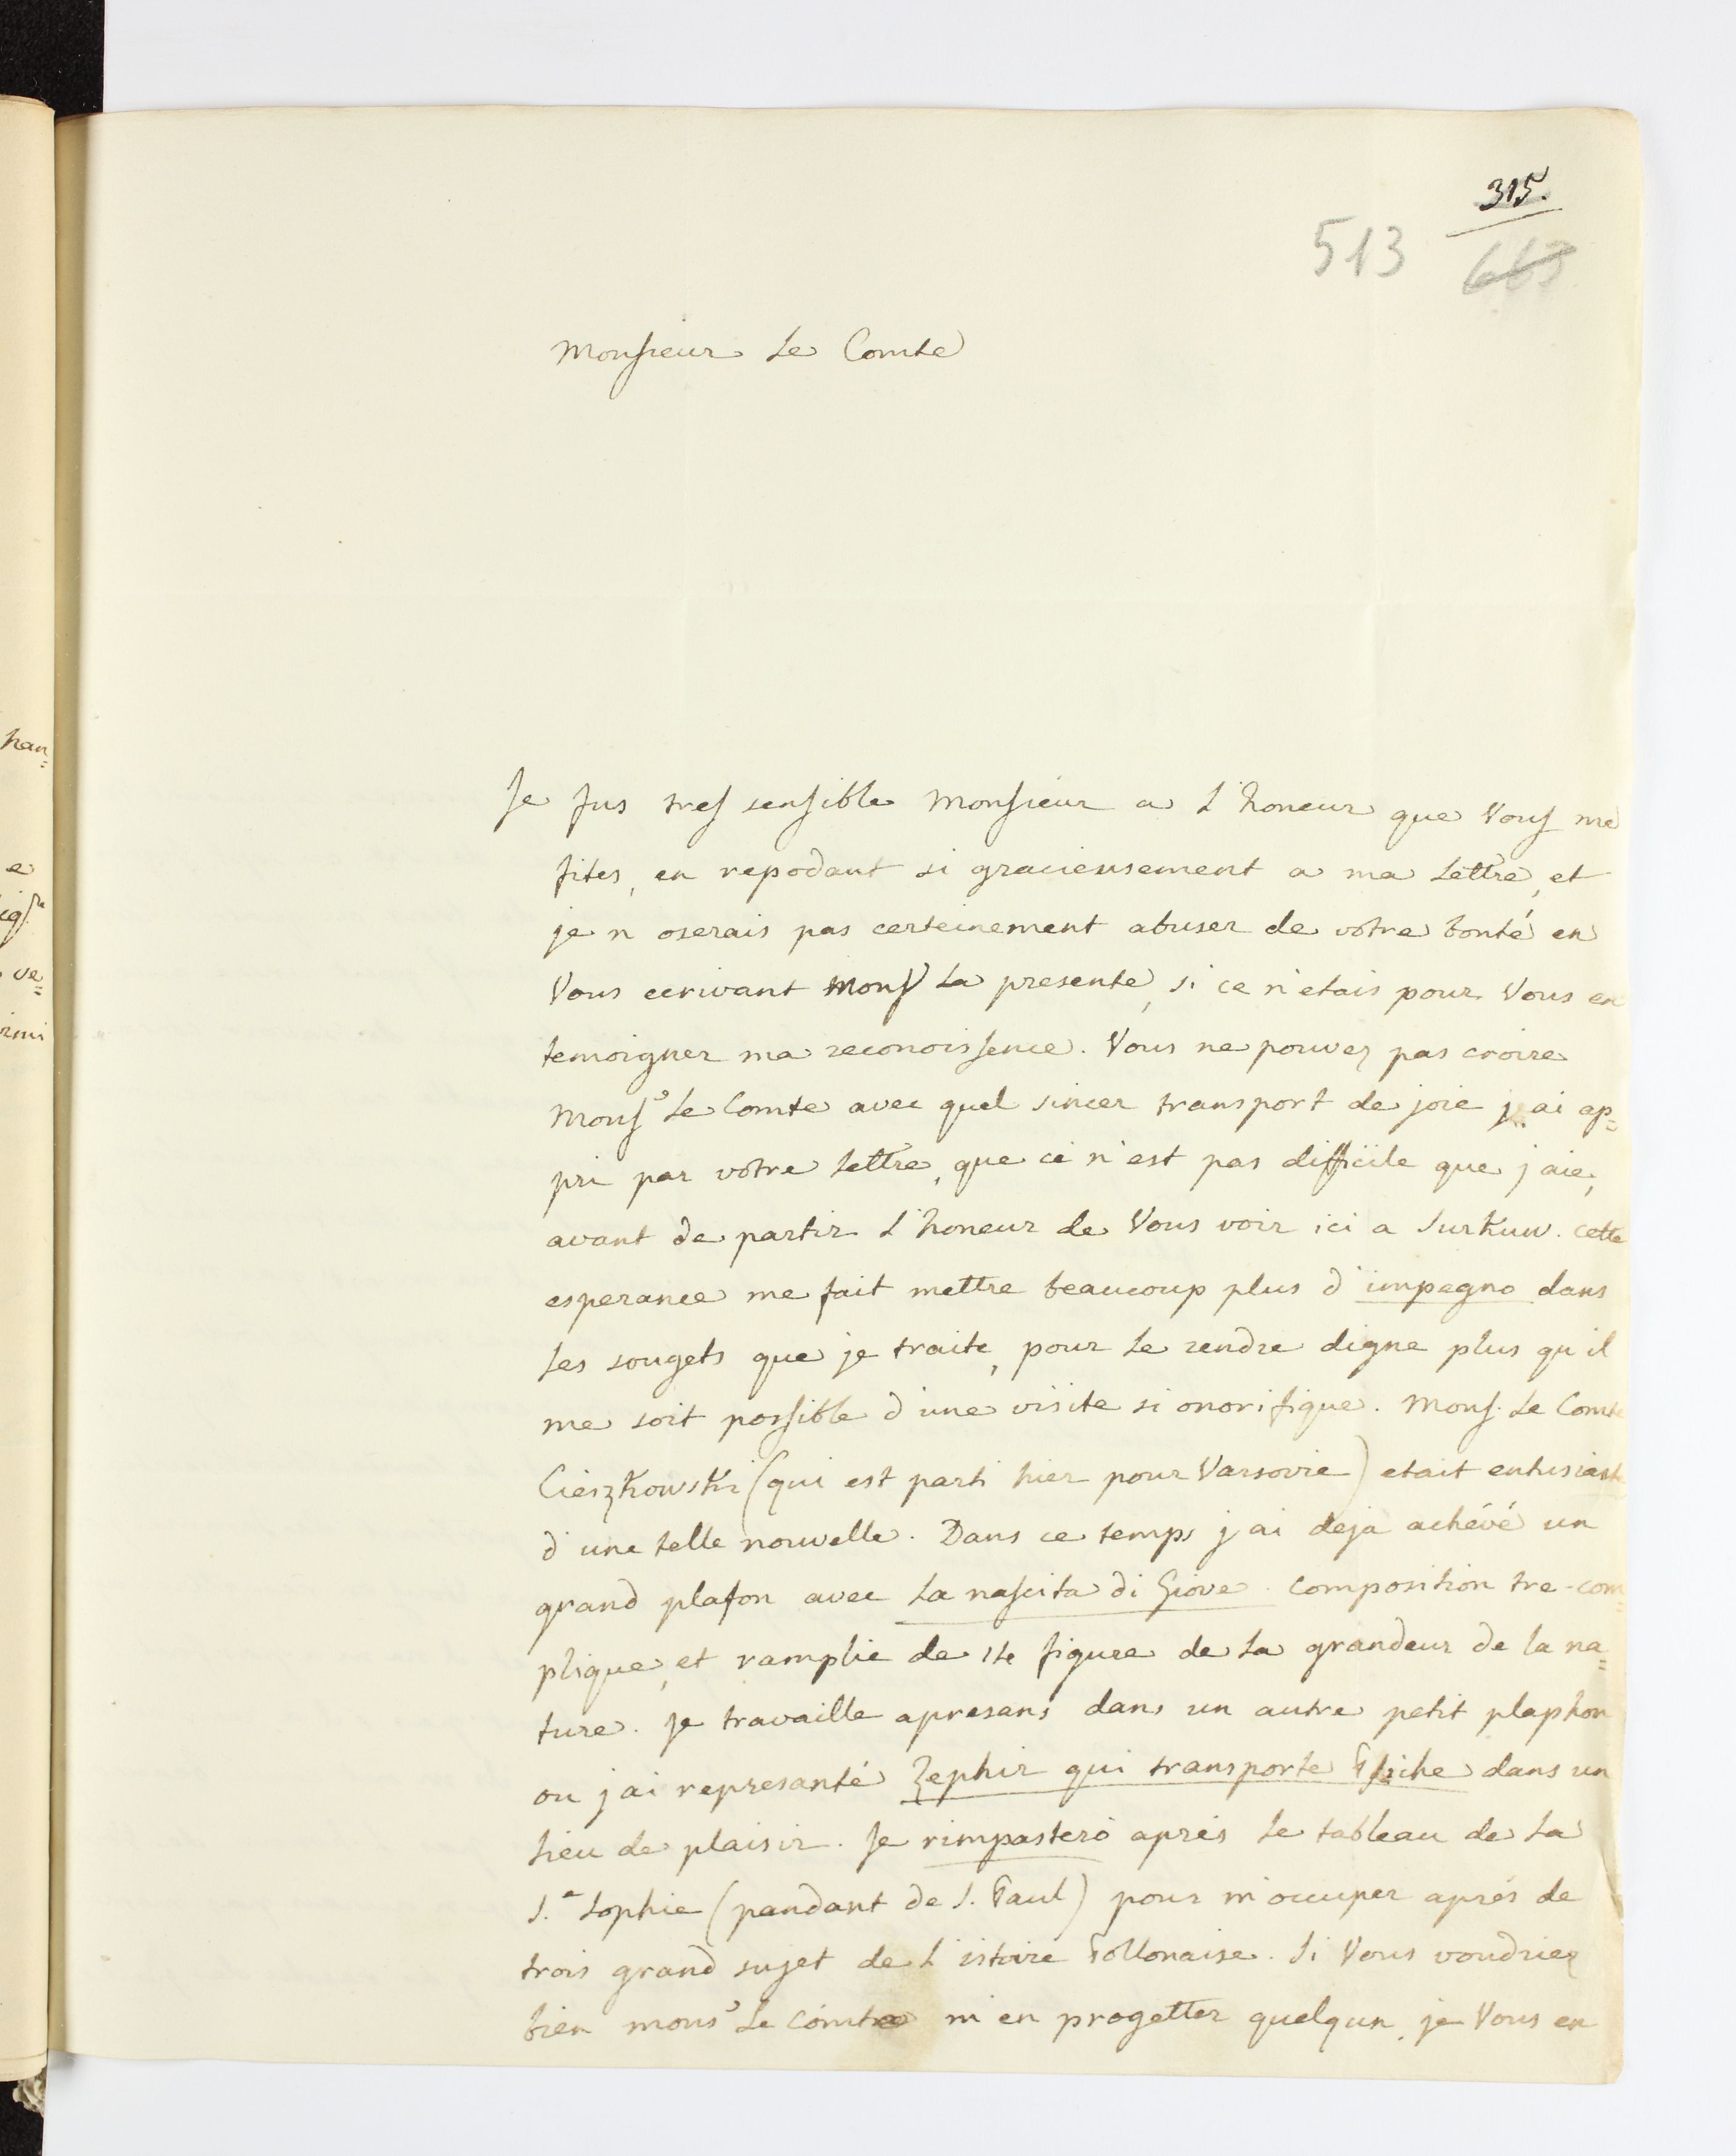 315.
513 663
Monsieur Le Comte
han=
e
ve=
Je fus tres sensible Monsieur a L'honeur que Vous me
fites, en repodant si gracieusement a ma Lettre, et
je n oserais pas certeinement abuser de votre bonté en
Vous ecrivant Mons.r La presente, si ce n'etais pour Vous en
temoigner ma reconoissence. Vous ne pouvez pas croire
Mons.r Le Comte avec quel sincer transport de joie j'ai ap=
pri par votre Lettre, que ce n'est pas difficile que j aie,
avant de partir L'honeur de Vous voir ici a Surkuw. Cette
esperance me fait mettre beaucoup plus d'impegno dans
Les sougets que je traite, pour Le rendre digne plus qu il
me soit possible d'une visite si onorifique. Mons. Le Comte
Cieszkowski (qui est parti hier pour Varsovie) etait entusiaste
d'une telle nouvelle. Dans ce temps j ai deja achévé un
grand plafon avec La nascita di Giove. composition tre-com=
plique, et ramplie de 14 figure de La grandeur de la na=
ture. Je travaille apresans dans un autre petit plaphon
ou j ai represanté Zephir qui transporte Psiche dans un
Lieu de plaisir. Je rimpasterò aprés Le tableau de La
S.a Sophie (pandant de S. Paul) pour m'occuper aprés de
trois grand sujet de L'istoire Pollonaise. Si Vous voudriez
bien mons.r Le Comte m'en progetter quelqun, je Vous en